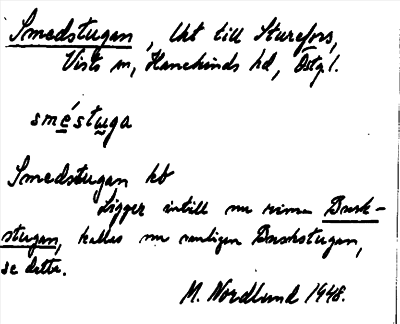 Smedstugan, lht till Sturefors,
Vists sn, Hanekinds hd, Östg.l.
sméstuga
Smedstugan hb
Ligger intill nu rivna Busk-
stugan, kallas nu vanligen Buskstugan,
se detta.
M. Nordlund 1948.